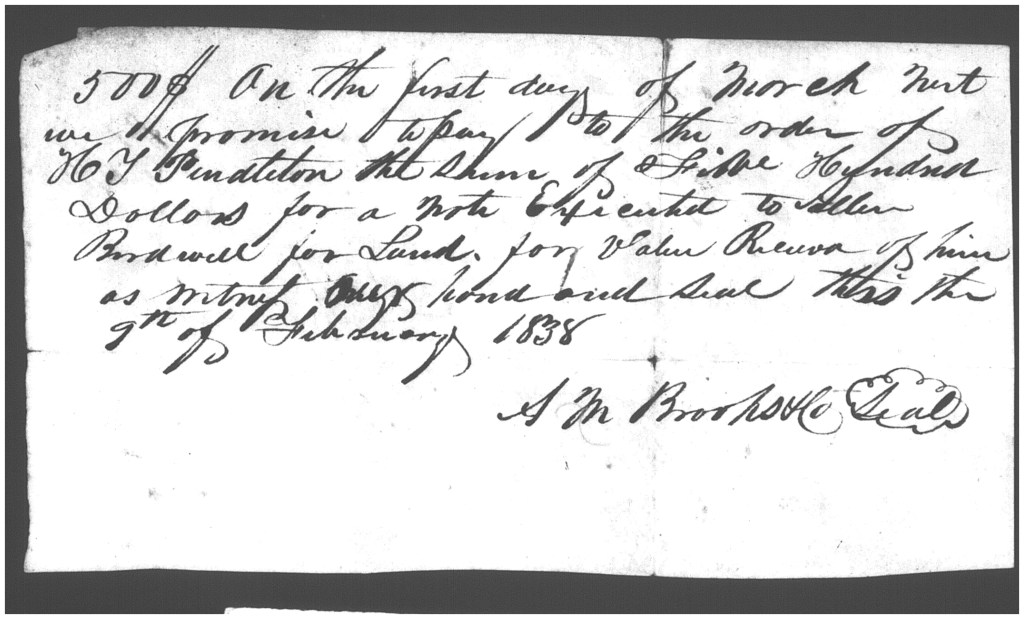 500$ On the first day of March Next
we promise to pay to the order of
H T Pendleton the Sum of Five Hundred
Dollars for a Note Executed to Allen
Birdwell for Land. for Value Received of him
as witness our hand and Seal this the
9th of February 1838
A M Brooks & Co Seal